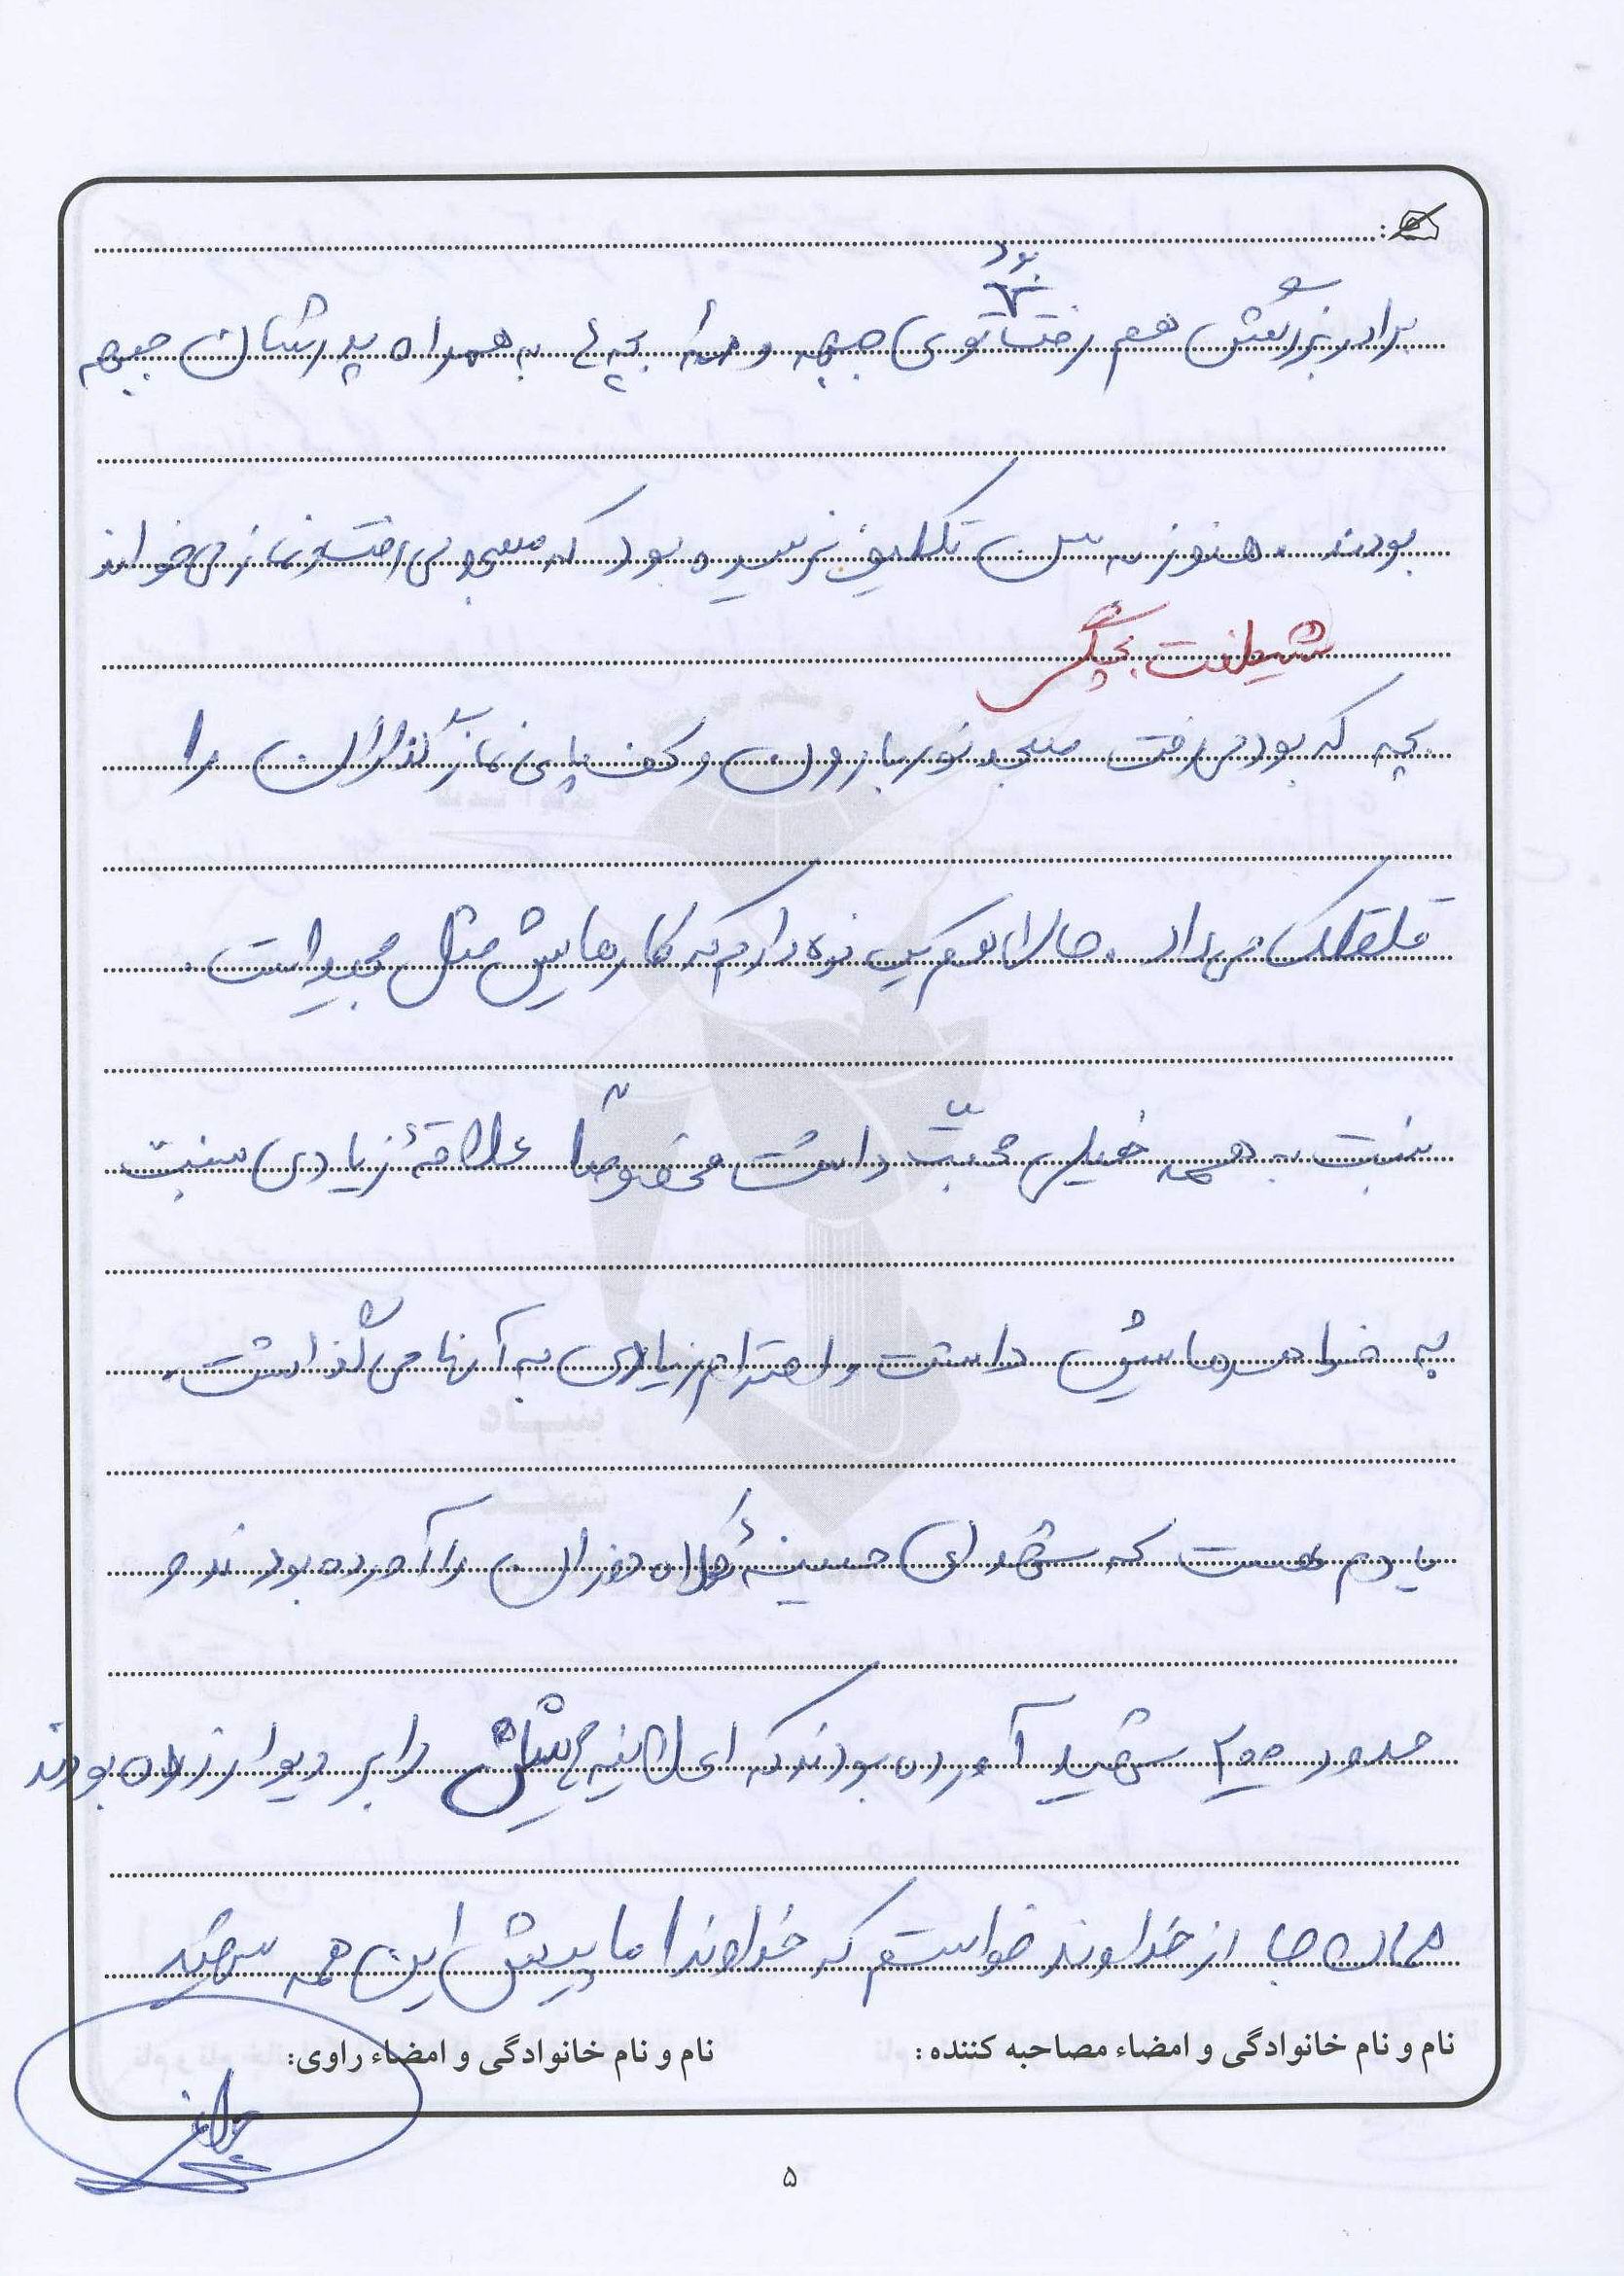 برادر بزرگش هم رفت بود توی جبهه و بچه به همراه پدرشان جبهه
بودند. هنوز به سن تکلیف نرسیده بود که مسجد می رفت و نماز می خواند
شیطنت بچگی
بچه که بود می رفت مسجد نوربارون و کف پای نمازگذاران را
قلقلک می داد. حالا هم یک نوه دارم که کارهایش مثل مجید است.
نسبت به همه خیلی محبّت داشت مخصوصاً علاقهٔ زیادی نسبت
به خواهرهایش داشت و احترام زیادی به آنها می گذاشت.
یادم هست که شهدای حسینیهٔ را آورده بودند و
حدود ۲۰۰ شهید آورده بودند که اعلامیه هایش را بر دیوار زده بودند
همان جا از خداوند خواستم که خداوندا ما پیش این همه شهید
نام و نام خانوادگی و امضاء مصاحبه کننده :
نام و نام خانوادگی و امضاء راوی:
۵